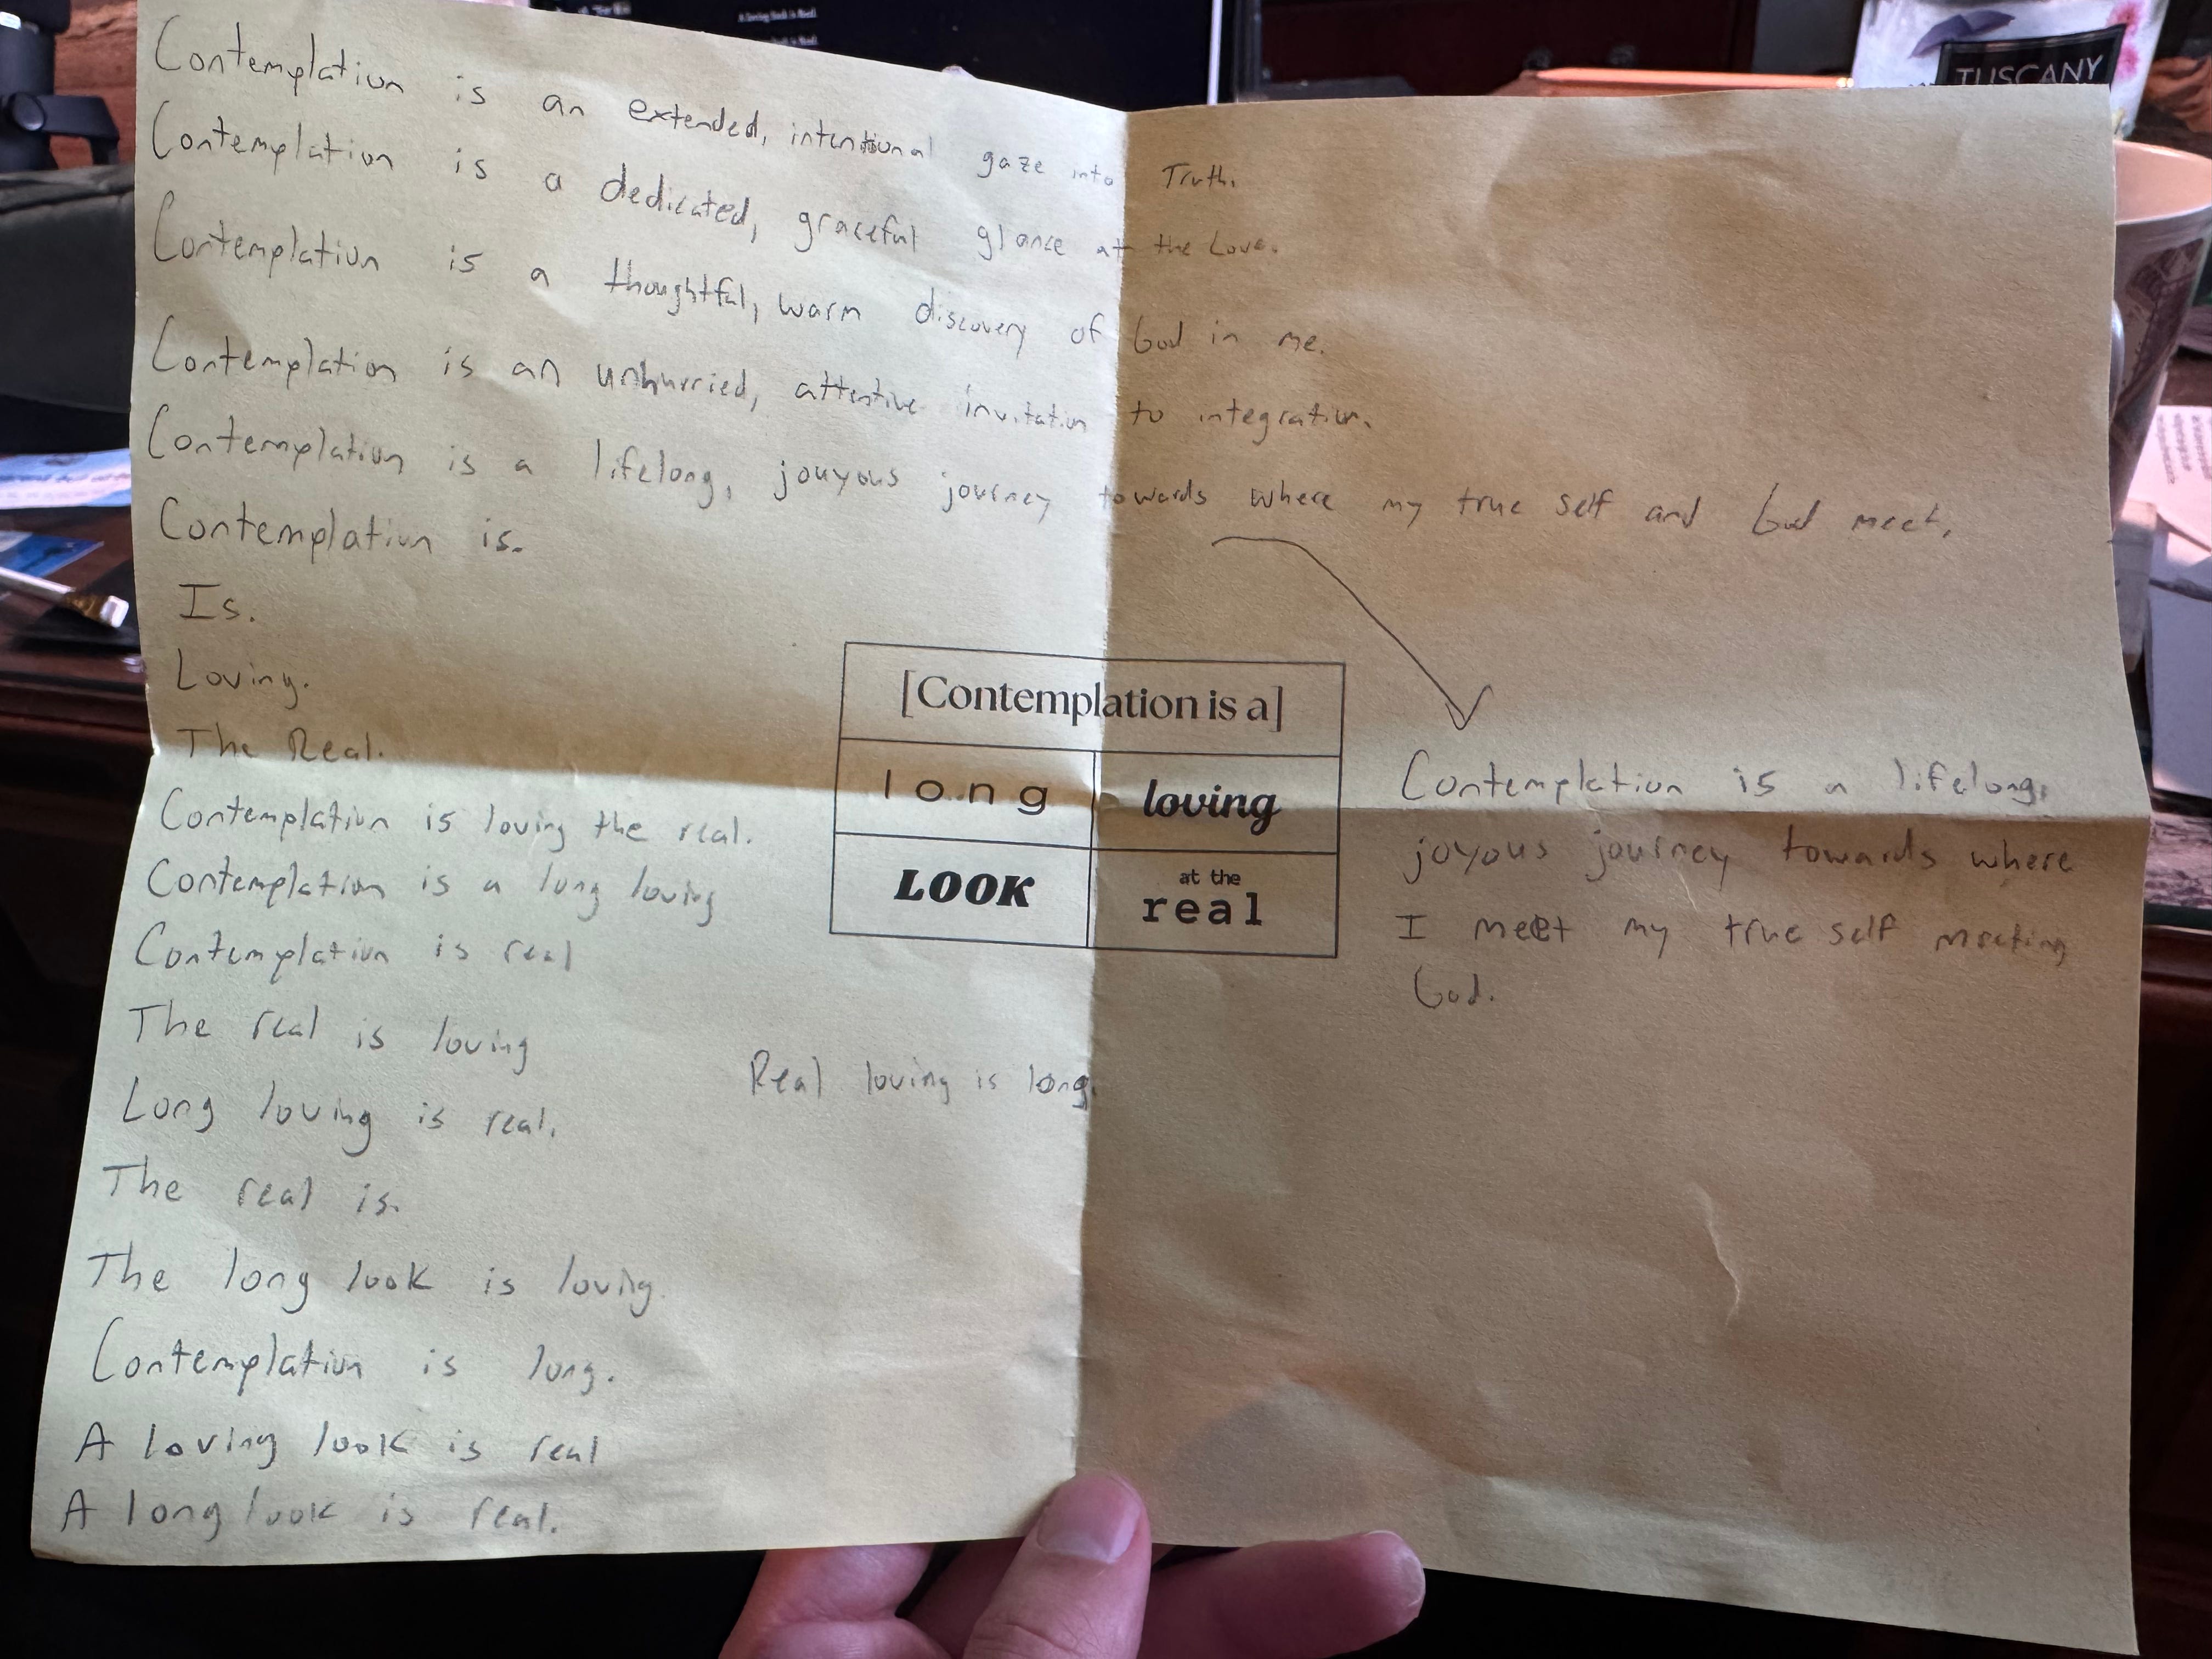 Contemplation is an extended, intentional gaze into Truth.
Contemplation is a dedicated, graceful glance at the Love.
Contemplation is a thoughtful, warm discovery of God in me.
Contemplation is an unhurried, attentive invitation to integration.
Contemplation is a lifelong, jouyous journey towards where my true self and God meet.
Contemplation is.
Is.
Loving.
The Real.
Contemplation is loving the real.
Contemplation is a long loving
Contemplation is real
The real is loving
Long loving is real.
The real is.
The long look is loving.
Contemplation is long.
A loving look is real
A long look is real.
Real loving is long.
[Contemplation is a]
long
loving
LOOK
at the
real
Contemplation is a lifelong,
joyous journey towards where
I meet my true self meeting
God.
TUSCANY
A loving look is Real.